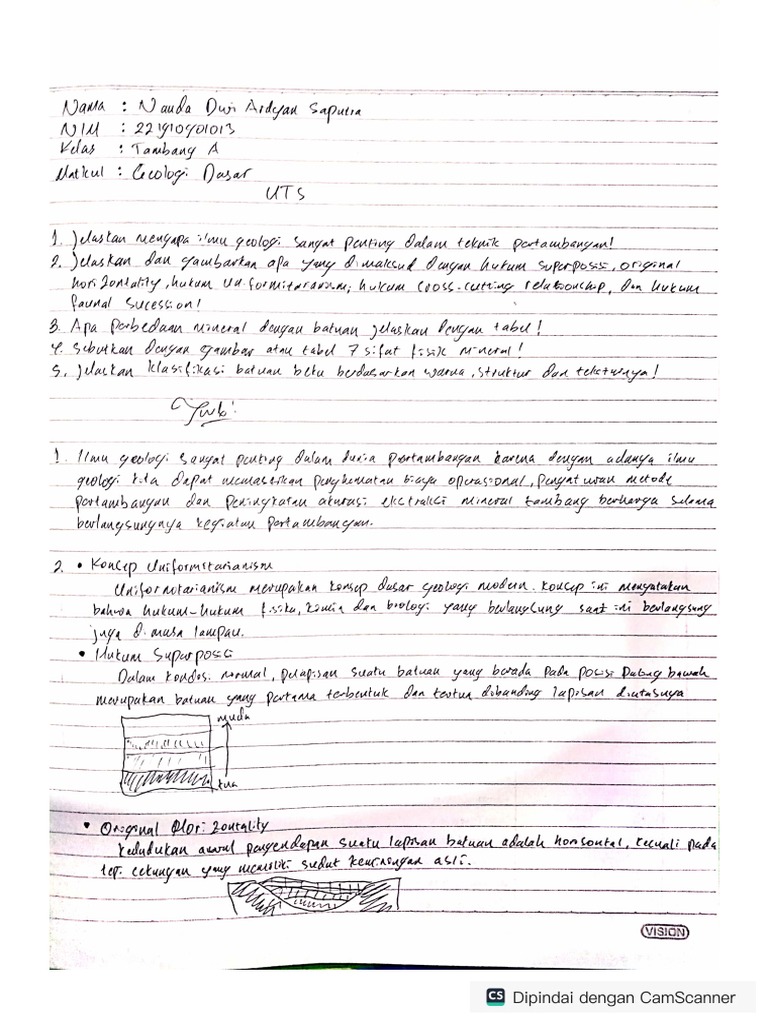 Nama : Nanda Dwi Ardyan Saputra
NIM : 221910401013
Kelas : Tambang A
Matkul : Geologi Dasar
UTS
1. Jelaskan mengapa ilmu geologi sangat penting dalam teknik pertambangan!
2. Jelaskan dan gambarkan apa yang dimaksud dengan hukum superposisi, original
horizontality, hukum uniformitarianism, hukum cross-cutting relationship, dan hukum
faunal sucession!
3. Apa perbedaan mineral dengan batuan jelaskan dengan tabel!
4. Sebutkan dengan gambar atau tabel 7 sifat fisik mineral!
5. Jelaskan klasifikasi batuan beku berdasarkan warna, struktur dan teksturnya!
Jwb:
1. Ilmu geologi sangat penting dalam dunia pertambangan karena dengan adanya ilmu
geologi kita dapat memastikan penghematan biaya operasional, pengaturan metode
pertambangan dan peningkatan akurasi ekstraksi mineral tambang berharga selama
berlangsungnya kegiatan pertambangan.
2. • Konsep Uniformitarianism
Uniformitarianism merupakan konsep dasar geologi modern. Konsep ini menyatakan
bahwa hukum-hukum fisika, kimia dan biologi yang berlangsung saat ini berlangsung
juga di masa lampau.
• Hukum Superposisi
Dalam kondisi normal, perlapisan suatu batuan yang berada pada posisi paling bawah
merupakan batuan yang pertama terbentuk dan tertua dibanding lapisan diatasnya
muda
tua
• Original Horizontality
Kedudukan awal pengendapan suatu lapisan batuan adalah horisontal, kecuali pada
tepi cekungan yang memiliki sudut kemiringan asli.
VISION
CS Dipindai dengan CamScanner